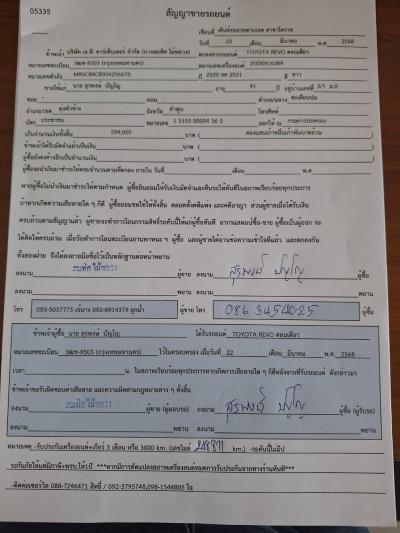 05335
สัญญาขายรถยนต์
เขียนที่ เต็นท์รถ
วันที่ 22 เดือน มีนาคม พ.ศ 2568
ข้าพเจ้า บริษัท เอ.ที. คาร์เซ็นเตอร์ จำกัด (นางสมทิศ ไม้หลวง) ยี่ห้อรถยนต์ TOYOTA REVO ตอนเดียว
หมายเลขทะเบียน 3ฒฃ-9503 (กรุงเทพมหานคร) หมายเลขเครื่องยนต์ 2GD0916289
หมายเลขตัวถัง MR0CB8CB004256670 ปี 2020 จด 2021 สี ขาว
ขายให้แก่ นาย สุรพงษ์ ปัญโญ อายุ 41 ปี อยู่บ้านเลขที่ 3/1 ม.8
ซอย - ถนน - ตำบล/แขวง
อำเภอ/เขต ทุ่งหัวช้าง จังหวัด ลำพูน โทรศัพท์
บัตร ประชาชน หมายเลข 1 5103 00004 36 0 ออกให้ ณ กรมการปกครอง
เป็นจำนวนเงินทั้งสิ้น 299,000 บาท ( สองแสนเก้าหมื่นเก้าพันบาทถ้วน )
ข้าพเจ้าได้รับมัดจำแล้วเป็นเงิน บาท ( )
ผู้ซื้อยังค้างอีกเป็นจำนวนเงิน บาท ( )
ผู้ซื้อจะนำเงินมาชำระให้ครบจำนวนตามที่ตกลง ภายใน วันที่ เดือน พ.ศ
หากผู้ซื้อไม่นำเงินมาชำระให้ตามกำหนด ผู้ซื้อยินยอมให้รับเงินมัดจำและคืนรถให้ทันทีในสภาพเรียบร้อยทุกประการ
ถ้าหากเกิดความเสียหายใด ๆ ก็ดี ผู้ซื้อยอมชดใช้ให้ทั้งสิ้น ตลอดทั้งคดีแพ่ง และคดีอาญา ส่วนผู้ขายเมื่อได้รับเงิน
ครบถ้วนตามสัญญาแล้ว ผู้ขายจะทำการโอนกรรมสิทธิ์รถคันนี้ให้แก่ผู้ซื้อทันที
ทั้งสองฝ่าย จึงได้ลงลายมือชื่อไว้เป็นหลักฐานต่อหน้าพยาน
ลงนาม สมทิศ ไม้หลวง ผู้ขาย ลงนาม สุรพงษ์ ปัญโญ ผู้ซื้อ
ลงนาม พยาน ลงนาม พยาน
โทร 093-5037775 เจ้นาง 092-8914379 ลูกน้ำ ผู้ขาย โทร 086 3454025 ผู้ซื้อ
ข้าพเจ้าผู้ซื้อ นาย สุรพงษ์ ปัญโญ ได้รับรถยนต์ TOYOTA REVO ตอนเดียว
หมายเลขทะเบียน 3ฒฃ-9503 (กรุงเทพมหานคร) ไว้ในครอบครอง เมื่อวันที่ 22 เดือน มีนาคม พ.ศ. 2568
เวลา น. ในสภาพเรียบร้อยทุกประการหากเกิดการเสียหายใด ๆ ก็ดีหลังจากที่รับรถยนต์ ดังกล่าวมา
ข้าพเจ้าขอรับผิดชอบค่าเสียหาย และความผิดตามกฎหมายต่าง ๆ ทั้งสิ้น
ลงนาม สมทิศ ไม้หลวง ผู้ขาย (ผู้มอบรถ) ลงนาม สุรพงษ์ ปัญโญ ผู้ซื้อ (ผู้รับรถ)
ลงนาม พยาน ลงนาม พยาน
หมายเหตุ -รับประกันเครื่องยนต์+เกียร์ 3 เดือน หรือ 3000 km. (เลขไมล์ km.) -รถคันนี้ไม่มี
ระกันภัยให้แต่มีภาษี+พรบ.ให้1ปี ***หากมีการดัดแปลงสภาพเครื่องยนต์หมดการรับประกันจากทางร้านทันที**
-ติดต่อเซอร์วิส 088-7246471 สิทธิ์ / 092-3795748,098-1544805 ใจ